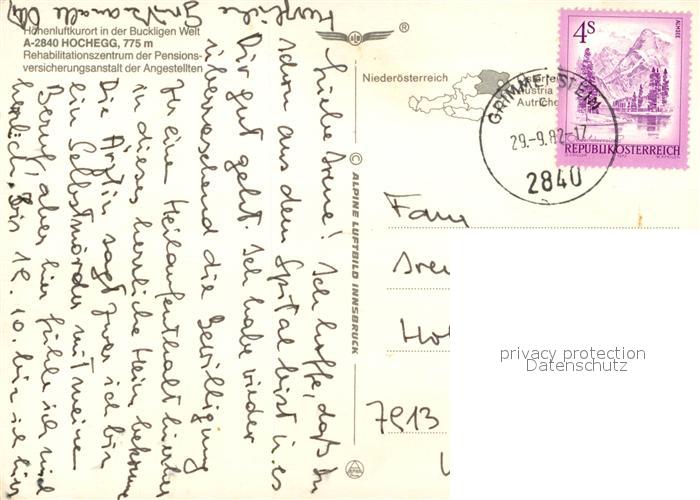 Höhenluftkurort in der Buckligen Welt
A-2840 HOCHEGG, 775 m
Rehabilitationszentrum der Pensions-
versicherungsanstalt der Angestellten
®
Niederösterreich
Österreich
Austria
Autriche
© ALPINE LUFTBILD INNSBRUCK
GRIMMENSTEIN
29.-9.82-17
2840
4S
ALMSEE
REPUBLIK ÖSTERREICH
Liebe Irene! Ich hoffe, daß Du
schon aus dem Spital bist u. es
Dir gut geht. Ich habe wieder
überraschend die Bewilligung
für eine Heilaufenthalt hierher
in dieses herrliche Heim bekommen
Die Ärztin sagt zwar ich bin
ein Selbstmörder mit meinem
Beruf, aber hier fühle ich mich
herrlich. Bis 19. 10. bin ich hier
Herzliche
Grüße an alle
Fam
Iren
Ho
7513
privacy protection
Datenschutz